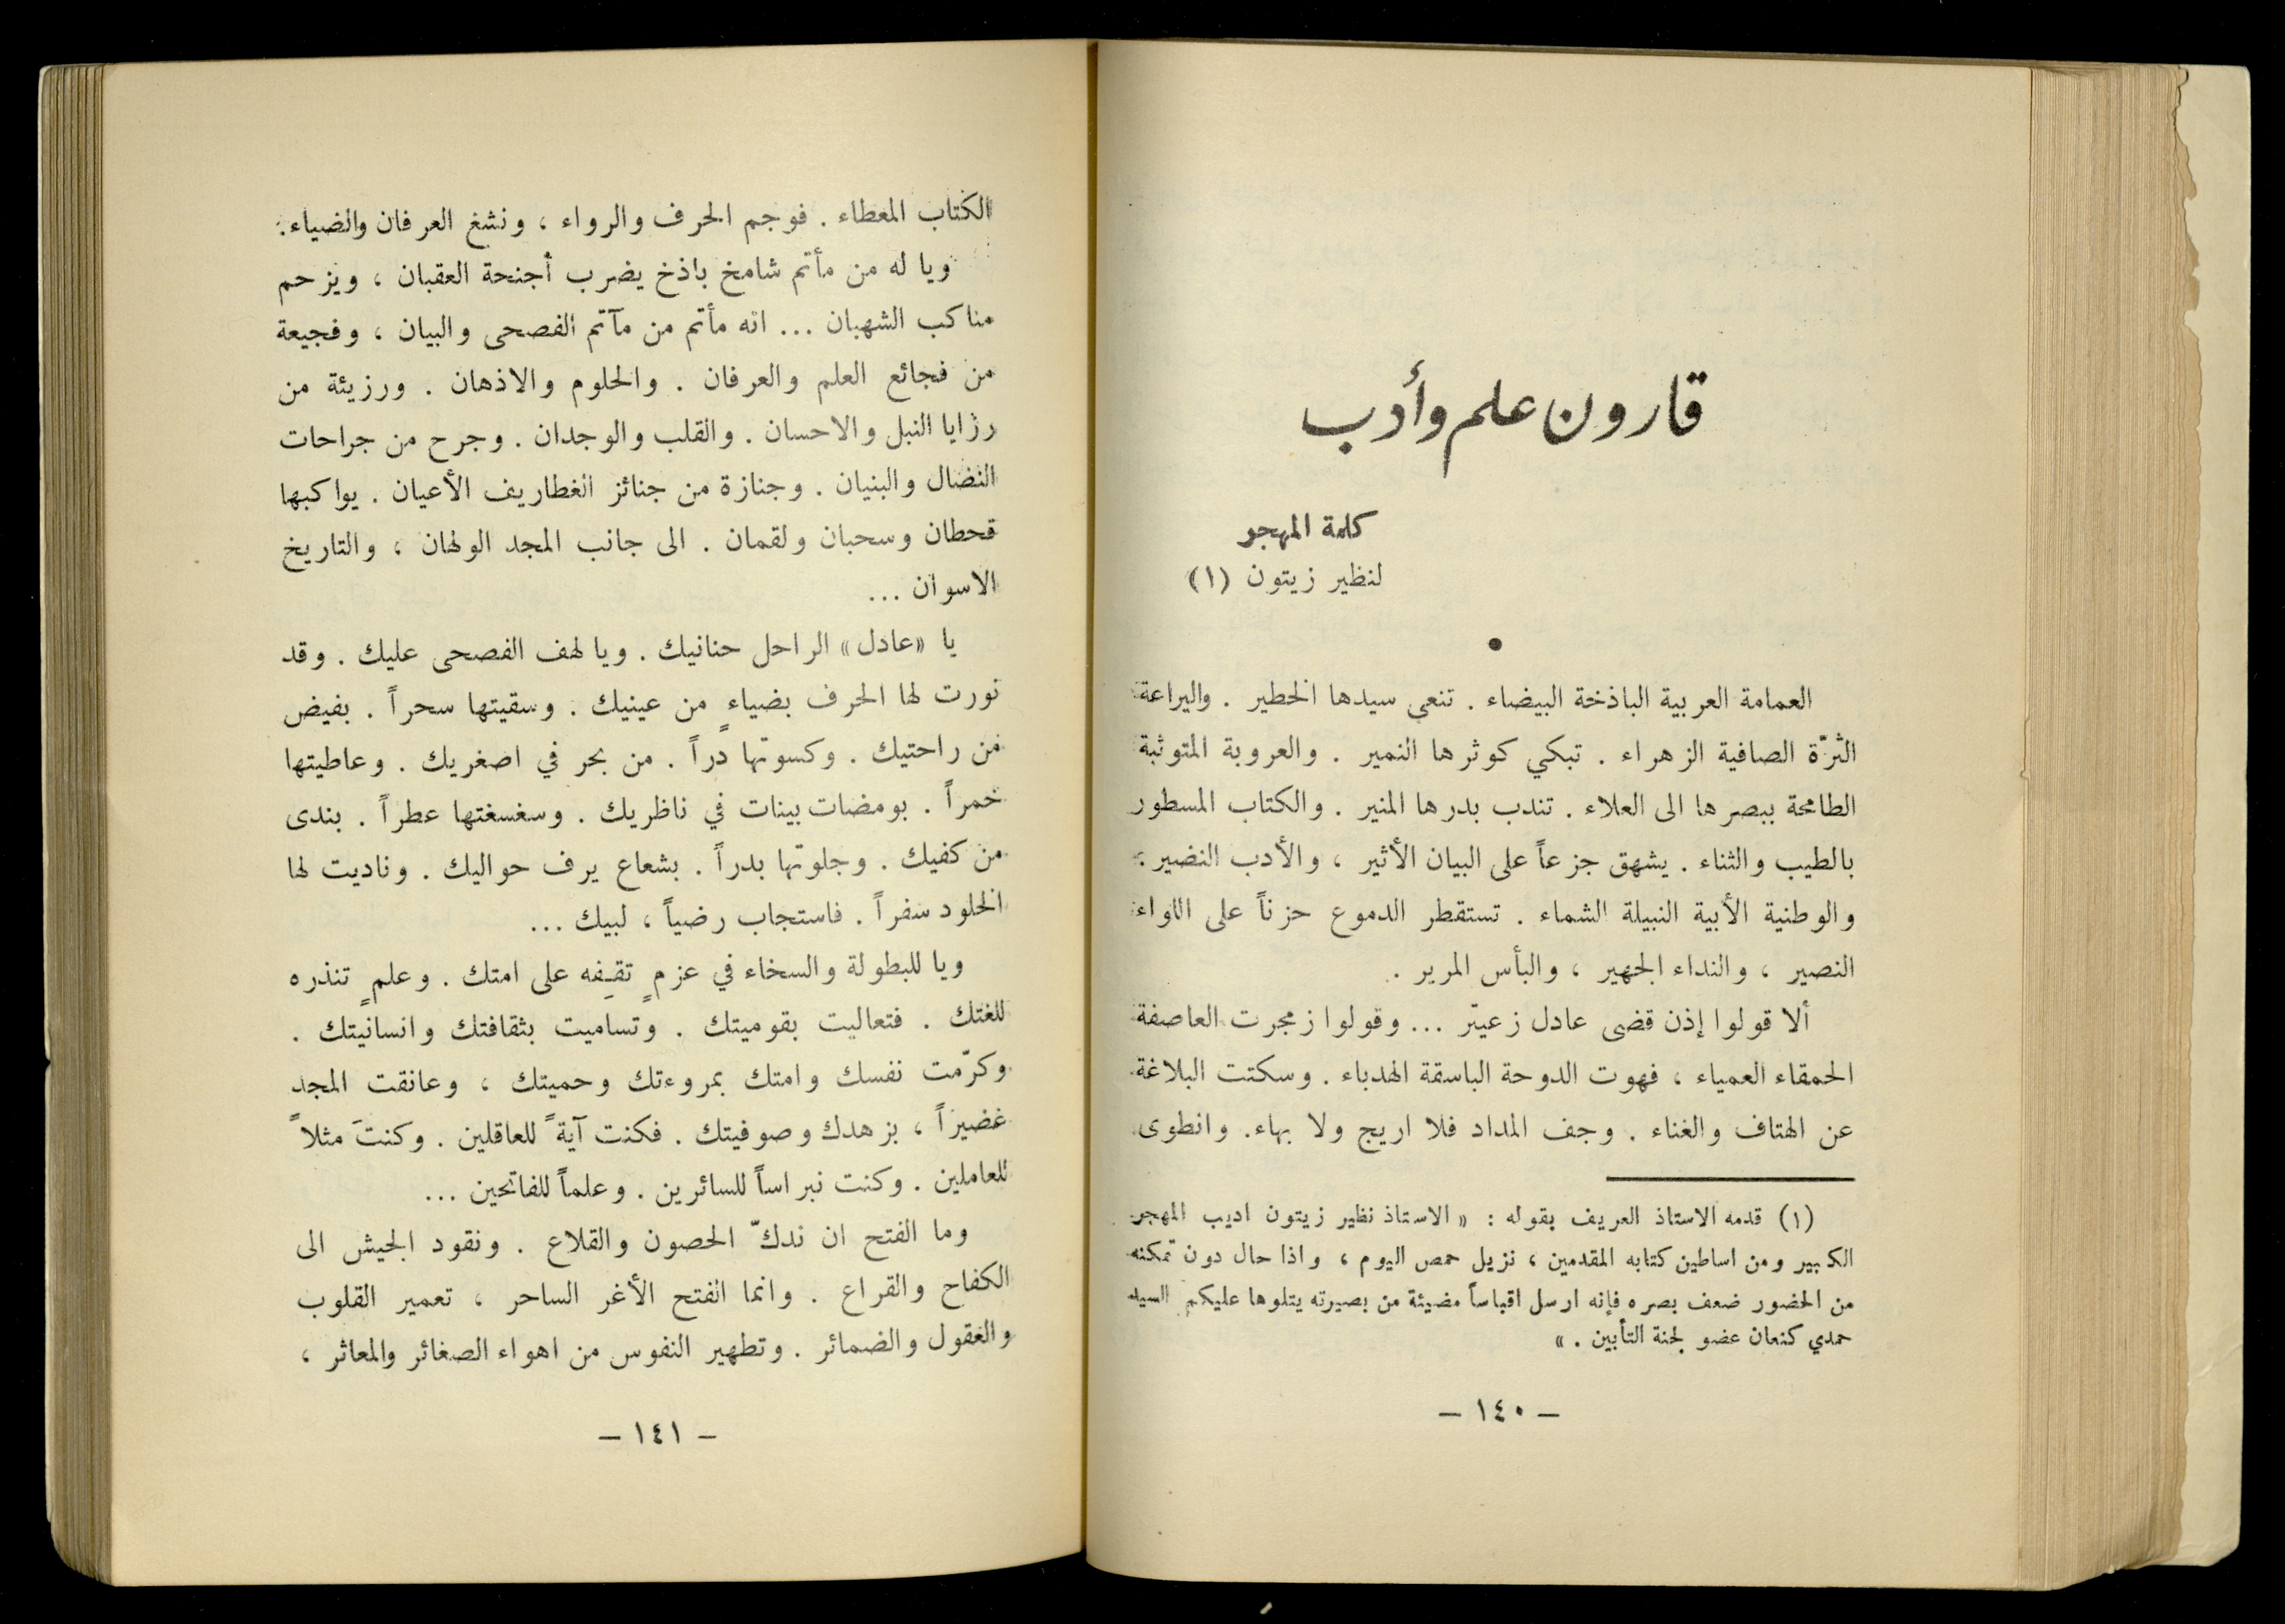 قارون علم وأدب
كلمة المهجر
لنظير زيتون (١)
العمامة العربية الباذخة البيضاء . تنعي سيدها الخطير . واليراعة
الثرّة الصافية الزهراء . تبكي كوثرها النمير . والعروبة المتوثبة
الطامحة ببصرها الى العلاء . تندب بدرها المنير . والكتاب المسطور
بالطيب والثناء . يشهق جزعاً على البيان الأثير ، والأدب النضير .
والوطنية الأبية النبيلة الشماء . تستقطر الدموع حزناً على اللواء
النصير ، والنداء الجهير ، والبأس المرير .
ألا قولوا إذن قضى عادل زعيتر ... وقولوا زمجرت العاصفة
الحمقاء العمياء ، فهوت الدوحة الباسقة الهدباء . وسكتت البلاغة
عن الهتاف والغناء . وجف المداد فلا اريج ولا بهاء . وانطوى
(١) قدمه الاستاذ العريف بقوله : « الاستاذ نظير زيتون اديب المهجر
الكبير ومن اساطين كتابه المقدمين ، نزيل حمص اليوم ، واذا حال دون تمكنه
من الحضور ضعف بصره فإنه ارسل اقباساً مضيئة من بصيرته يتلوها عليكم السيد
حمدي كنعان عضو لجنة التأبين . »
– ١٤٠ –
الكتاب المعطاء . فوجم الحرف والرواء ، ونشغ العرفان والضياء .
ويا له من مأتم شامخ باذخ يضرب أجنحة العقبان ، ويزحم
مناكب الشهبان ... انه مأتم من مآتم الفصحى والبيان ، وفجيعة
من فجائع العلم والعرفان . والحلوم والاذهان . ورزيئة من
رزايا النبل والاحسان . والقلب والوجدان . وجرح من جراحات
النضال والبنيان . وجنازة من جنائز الغطاريف الأعيان . يواكبها
قحطان وسحبان ولقمان . الى جانب المجد الولهان ، والتاريخ
الاسوان ...
يا «عادل» الراحل حنانيك . ويا لهف الفصحى عليك . وقد
نورت لها الحرف بضياءٍ من عينيك . وسقيتها سحراً . بفيض
من راحتيك . وكسوتها دراً . من بحر في اصغريك . وعاطيتها
خمراً . بومضات بينات في ناظريك . وسغسغتها عطراً . بندى
من كفيك . وجلوتها بدراً . بشعاع يرف حواليك . وناديت لها
الخلود سفراً . فاستجاب رضياً ، لبيك ...
ويا للبطولة والسخاء في عزمٍ تقِفه على امتك . وعلمٍ تنذره
للغتك . فتعاليت بقوميتك . وتساميت بثقافتك وانسانيتك .
وكرّمت نفسك وامتك بمروءتك وحميتك ، وعانقت المجد
غضيراً ، بزهدك وصوفيتك . فكنت آيةً للعاقلين . وكنتَ مثلاً
للعاملين . وكنت نبراساً للسائرين . وعلماً للفاتحين ...
وما الفتح ان ندكّ الحصون والقلاع . ونقود الجيش الى
الكفاح والقراع . وانما الفتح الأغر الساحر ، تعمير القلوب
والعقول والضمائر . وتطهير النفوس من اهواء الصغائر والمعاثر ،
– ١٤١ –